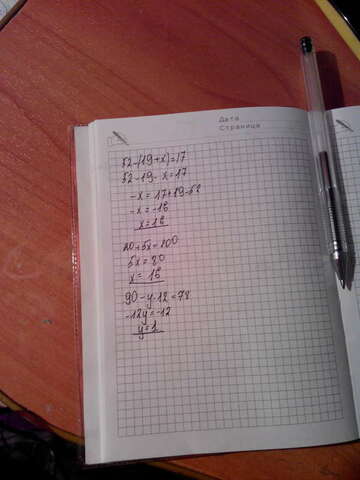 Дата
Страница
52-(19+x)=17
52-19-x=17
-x=17+19-52
-x=-16
x=16
20+5x=100
5x=80
x=16
90-y·12=78
-12y=-12
y=1